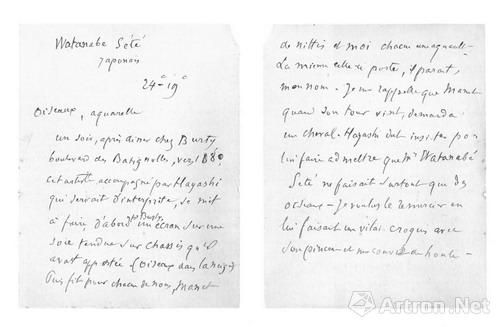 Watanabe Sété
Japonais
24c – 19c
Oiseaux, aquarelle
un soir, après diner chez Burty,
boulevard des Batignolles, vers 1880
cet artiste accompagné par Hayashi
qui servait d'interprète, se mit
à faire, d'abord pr Burty, un écran sur une
soie tendue sur chassis qu'il
avait apportée (Oiseaux dans la neige)
Puis fit pour chacun de nous, Manet
de Nittis et moi chacun une aquarelle
La mienne celle ci porte, paraît,
mon nom. Je me rappelle que Manet
quand son tour vint, demanda
un cheval. Hayashi dut insister pour
lui faire admettre que Mr Watanabé
Sété ne faisait surtout que des
oiseaux – Je voulus le remercier en
lui faisant un vilain croquis avec
son pinceau et me couvris de honte –
Artron.Net